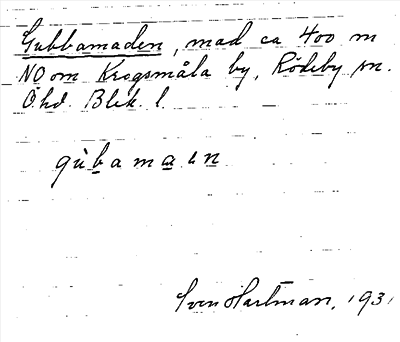 Gubbamaden, mad ca 400 m
NO om Krogsmåla by, Rödeby sn.
Ö. hd. Blek. l.
gùbamaan
Sven Hartman, 1931